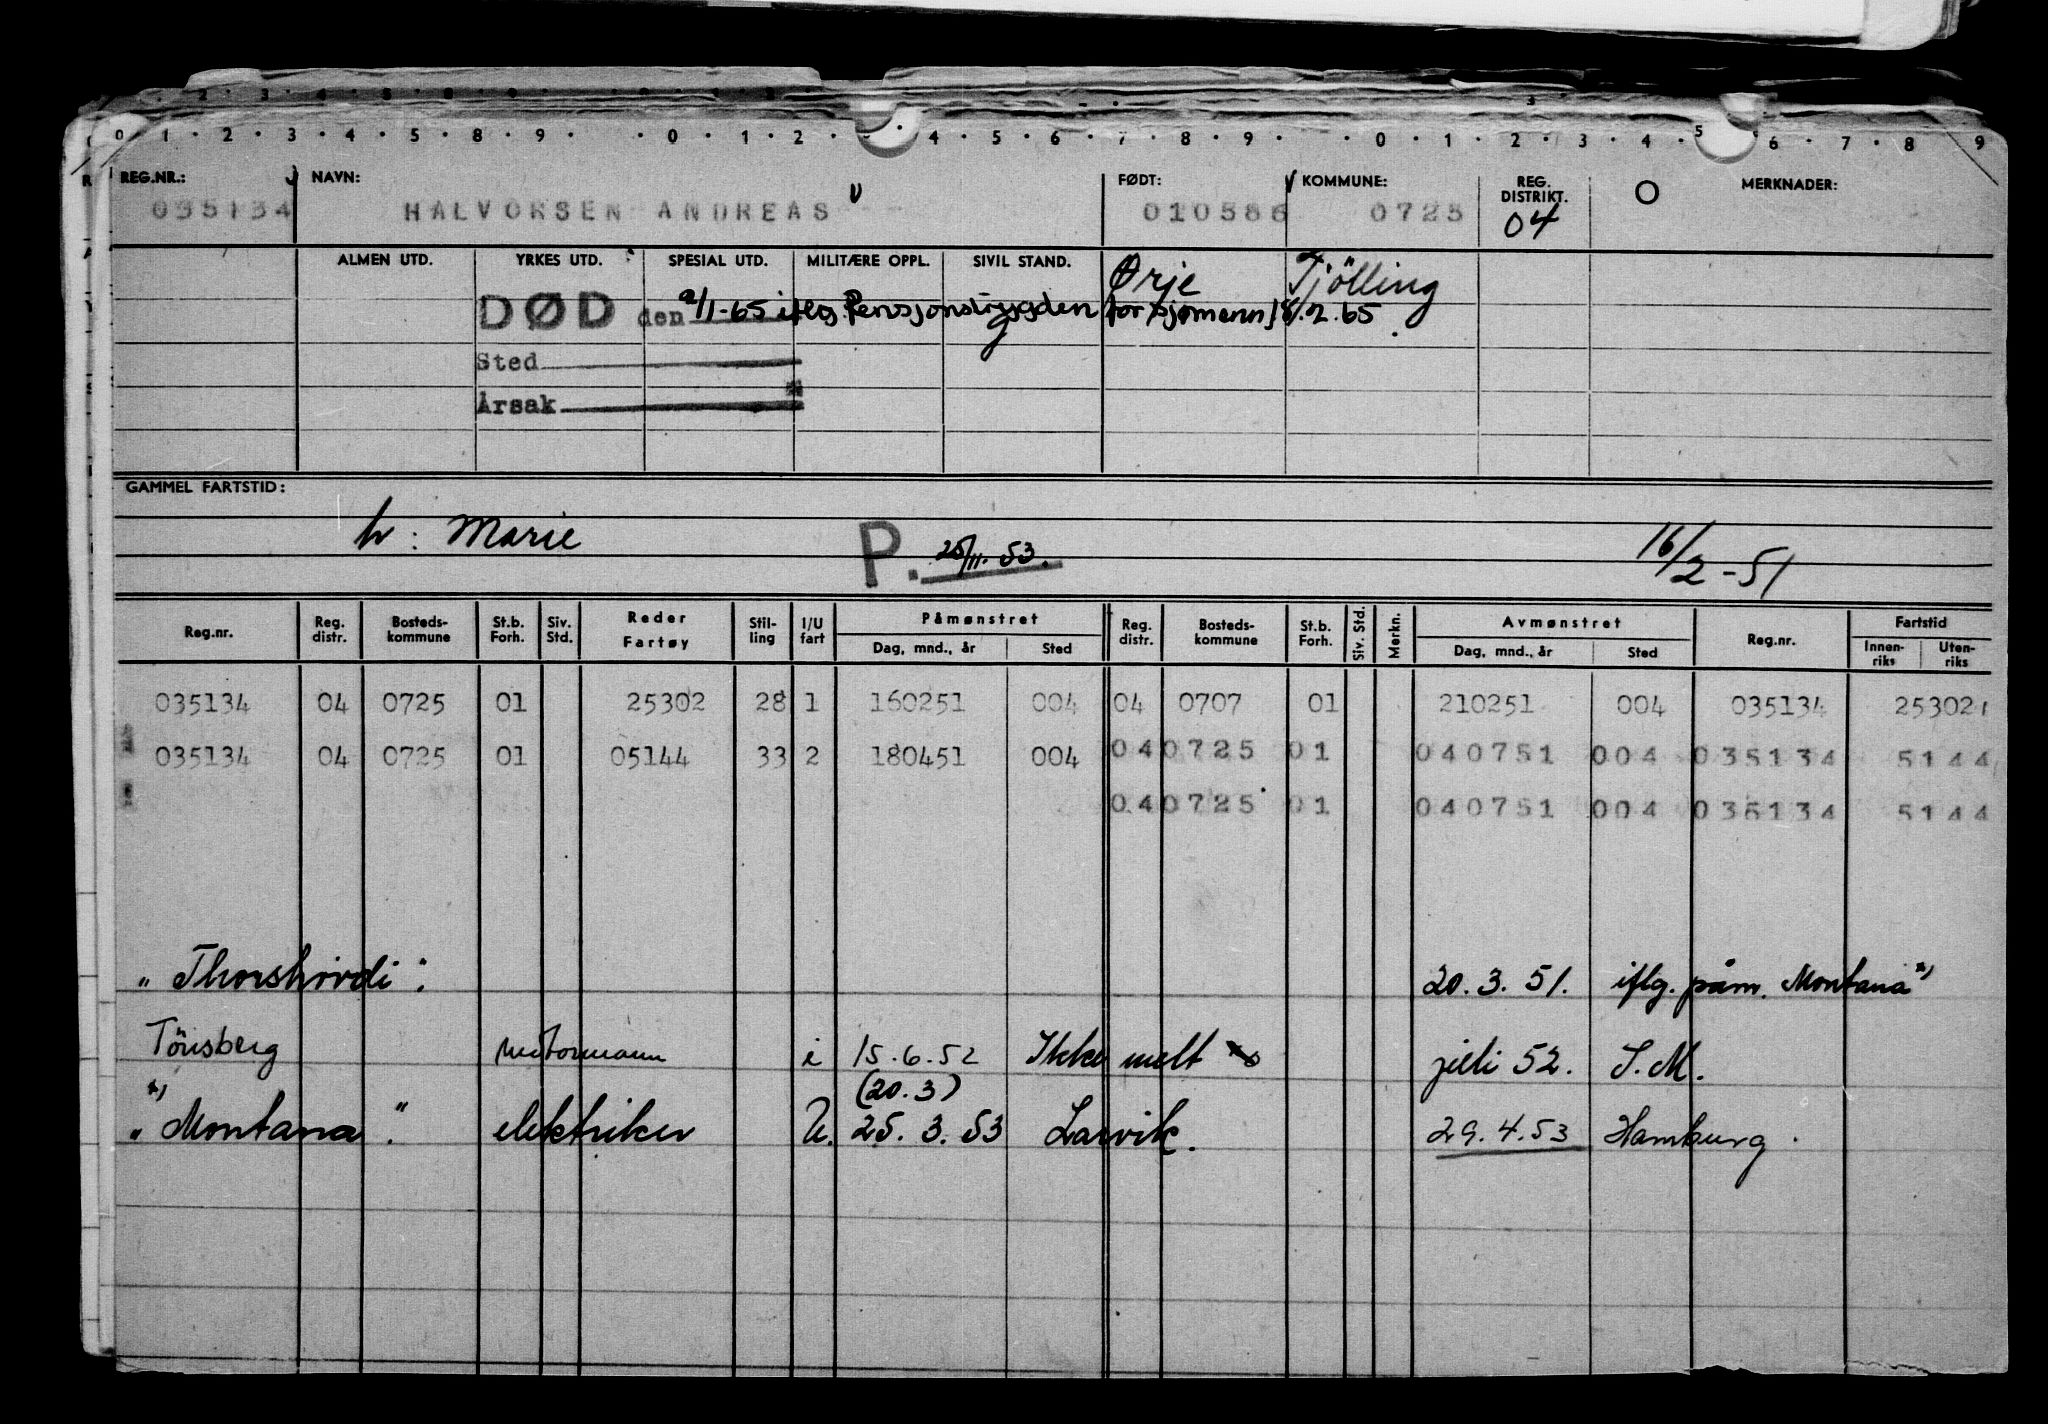 0 · 1 · 2 · 3 · 4 · 5 · 8 · 9 · · 0 · 1 · 2 · · 4 · 5 · 6 · 7 · 8 · 9 · · 0 · 1 · 2 · 3 · 4 · 5 · 6 · 7 · 8 · 9
REG.NR.: NAVN: FØDT: KOMMUNE: REG. DISTRIKT. O MERKNADER:
035134 HALVORSEN ANDREAS 010586 0725 04
ALMEN UTD. YRKES UTD. SPESIAL UTD. MILITÆRE OPPL. SIVIL STAND. Ørje Tjölling
DØD den 9/1-65 iflg. Pensjonstrygden for sjømenn 18/.2.65
Sted
Årsak
GAMMEL FARTSTID:
h: Marie P. 25/11.53. 16/2-51
Reg.nr. Reg. distr. Bosteds-kommune St.b. Forh. Siv. Std. Reder Fartøy Stil-ling I/U fart Påmønstret Dag, mnd., år Sted Reg. distr. Bosteds-kommune St.b. Forh. Siv. Std. Merkn. Avmønstret Dag, mnd., år Sted Reg.nr. Fartstid Innen-riks Uten-riks
035134 04 0725 01 25302 28 1 160251 004 04 0707 01 210251 004 035134 25302 1
035134 04 0725 01 05144 33 2 180451 004 04 0725 01 040751 004 035134 5144
04 0725 01 040751 004 035134 5144
"Thorshövdi". 20.3.51. iflg. påm. Montana *)
Tönsberg motormann i 15.6.52 Ikke melt juli 52. S.M.
(20.3)
*) "Montana". elektriker U. 25.3.53 Larvik. 29.4.53 Hamburg.